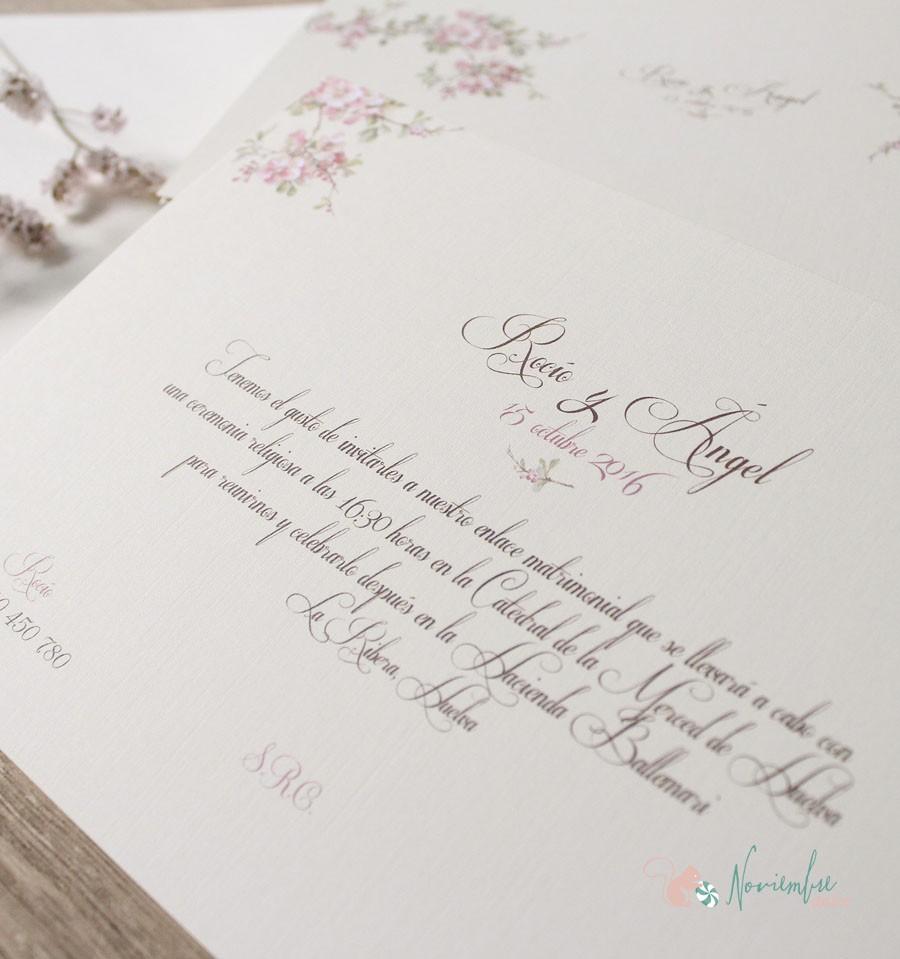 Rocío y Ángel
Rocío y Ángel
15 octubre 2016
Tenemos el gusto de invitarles a nuestro enlace matrimonial que se llevará a cabo con
una ceremonia religiosa a las 16:30 horas en la Catedral de la Merced de Huelva
para reunirnos y celebrarlo después en la Hacienda Ballemari
La Ribera, Huelva
Rocío
450 780
S.R.C.
Noviembre